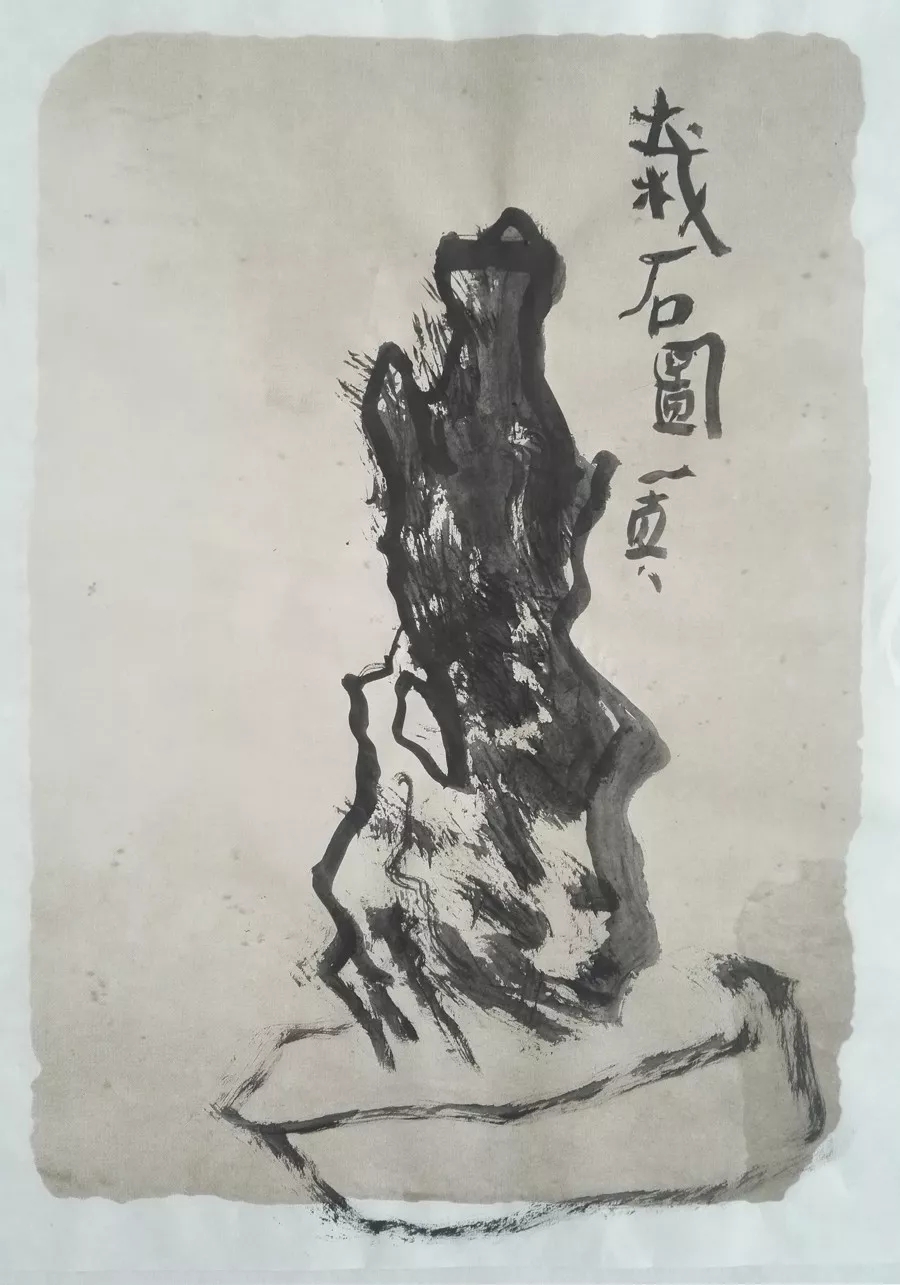 栽石圖 一真